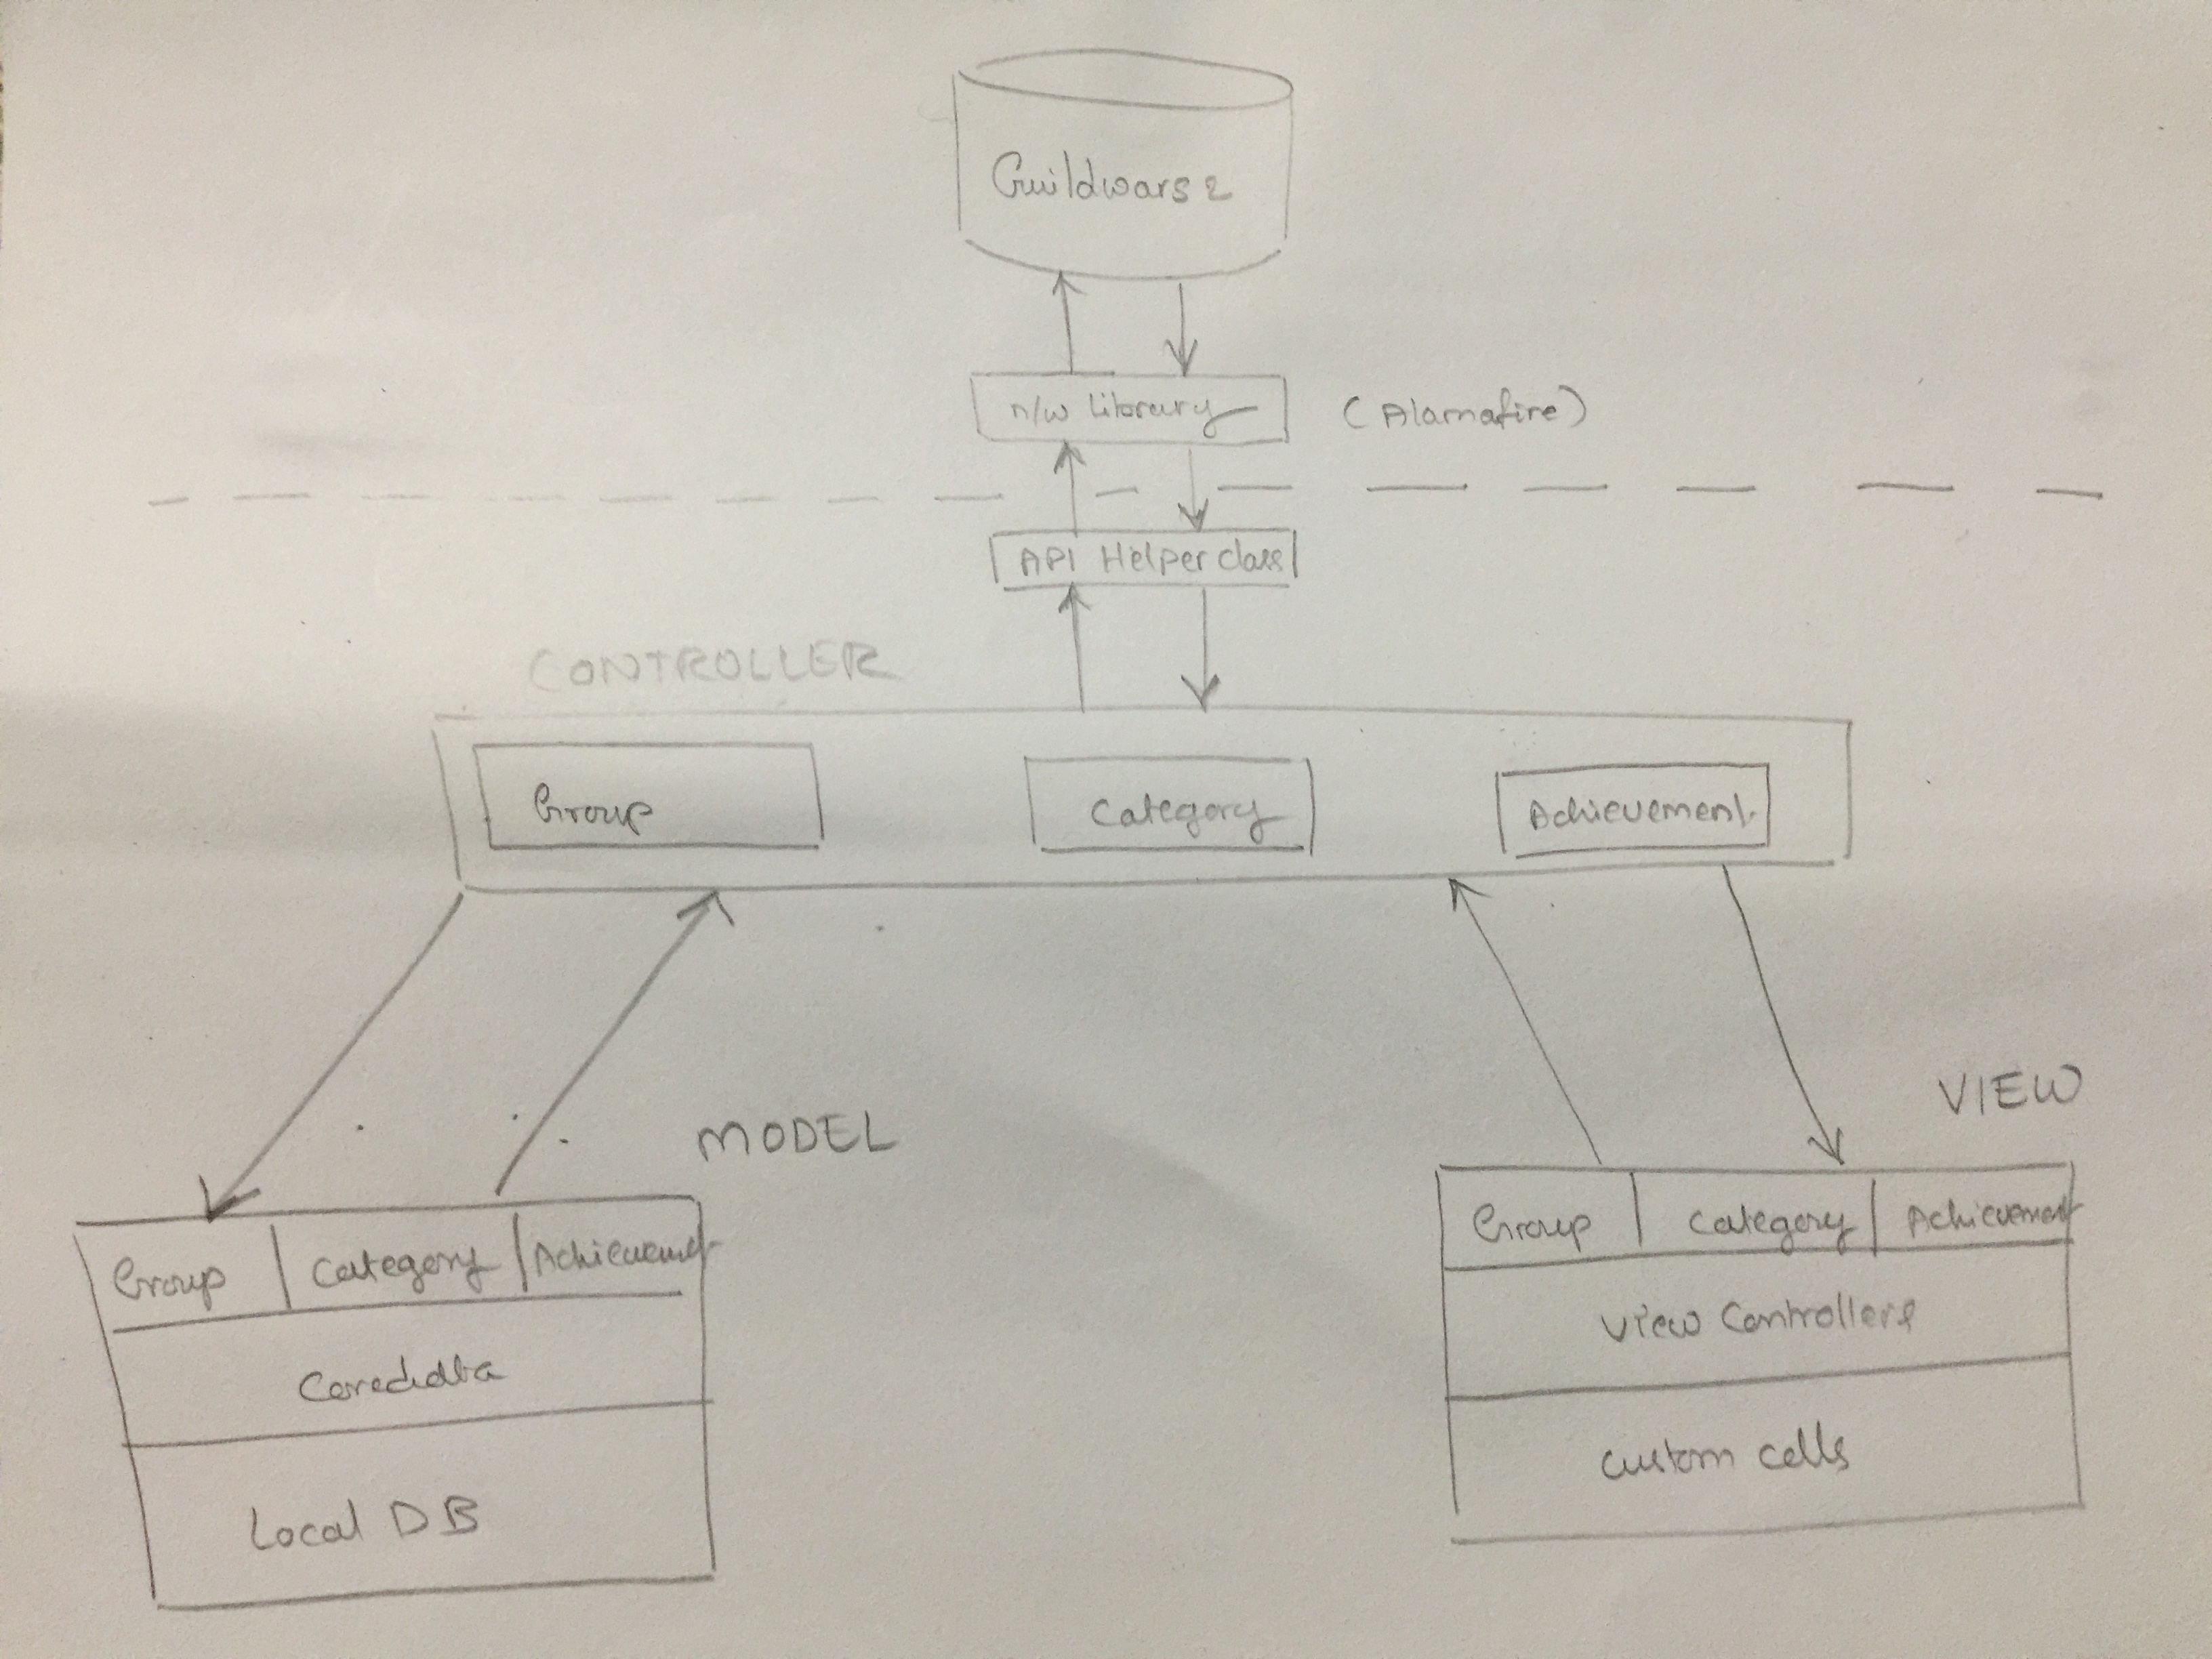 Guildwars 2
n/w Library
(Alamafire)
API Helper class
CONTROLLER
Group
Category
Achievement
MODEL
VIEW
Group | Category | Achievement
Coredata
Local DB
Group | Category | Achievement
View Controllers
Custom cells